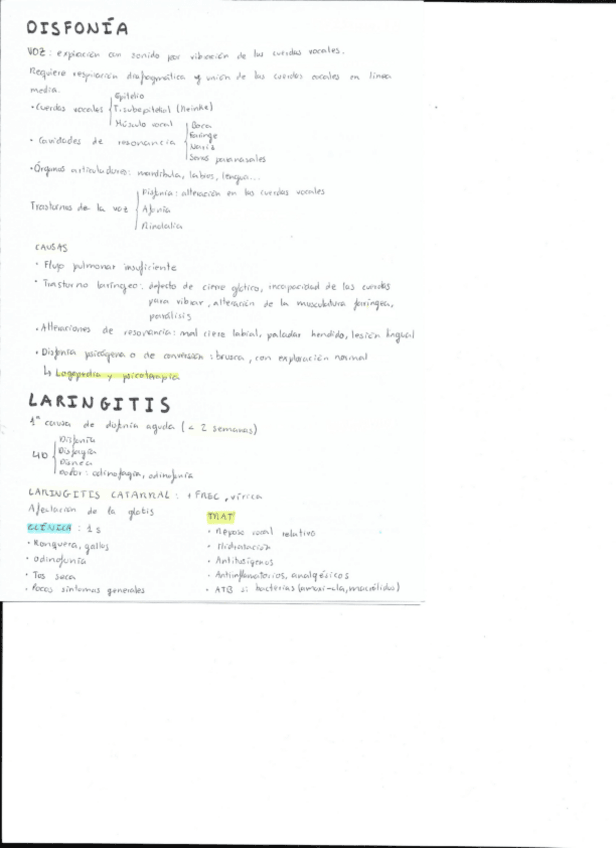 DISFONÍA
VOZ: expiración con sonido por vibración de las cuerdas vocales.
Requiere respiración diafragmática y unión de las cuerdas vocales en línea
media.
• Cuerdas vocales
Epitelio
T. subepitelial (Reinke)
Músculo vocal
• Cavidades de resonancia
Boca
Faringe
Nariz
Senos paranasales
• Órganos articuladores: mandíbula, labios, lengua...
Trastornos de la voz
Disfonía: alteración en las cuerdas vocales
Afonía
Rinolalia
CAUSAS
• Flujo pulmonar insuficiente
• Trastorno laríngeo: defecto de cierre glótico, incapacidad de las cuerdas
para vibrar, alteración de la musculatura faríngea,
parálisis
• Alteraciones de resonancia: mal cierre labial, paladar hendido, lesión lingual
• Disfonía psicógena o de conversión: brusca, con exploración normal
↳ Logopedia y psicoterapia
LARINGITIS
1ª causa de disfonía aguda (< 2 semanas)
4D
Disfonía
Disfagia
Disnea
Dolor: odinofagia, odinofonía
LARINGITIS CATARRAL: + FREC, vírica
Afectación de la glotis
CLÍNICA: 1 s
• Ronquera, gallos
• Odinofonía
• Tos seca
• Pocos síntomas generales
TRAT
• Reposo vocal relativo
• Hidratación
• Antitusígenos
• Antiinflamatorios, analgésicos
• ATB si bacterias (amoxi-cla, macrólidos)